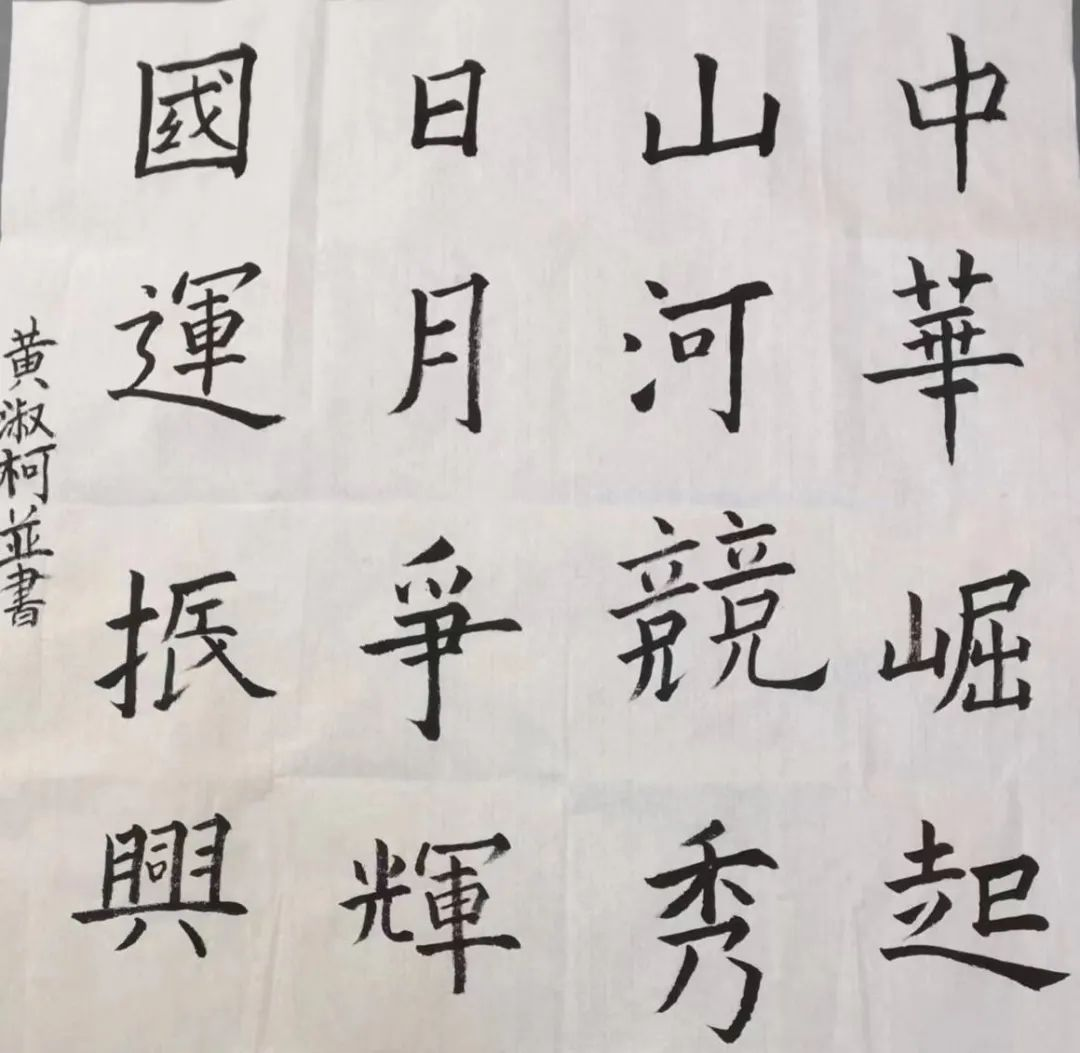 中華崛起
山河競秀
日月爭輝
國運振興
黄淑柯並書